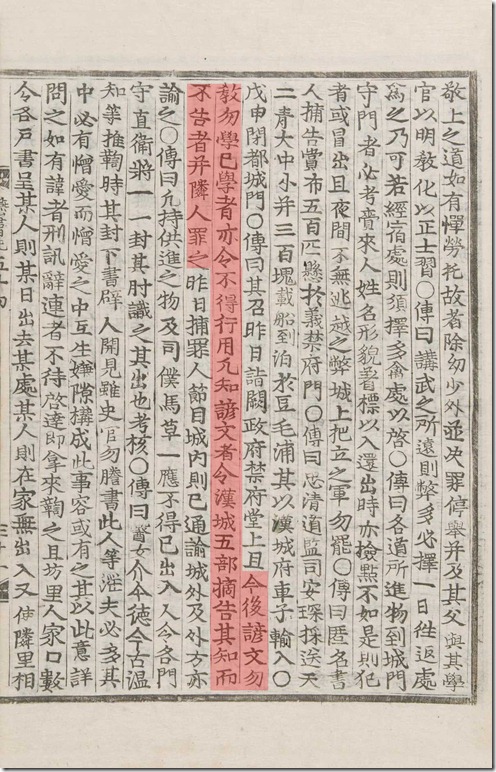 敬上之道如有憚勞托故者除勿少外並決罪停擧幷及其父與其學
官以明教化以正士習○傳曰講武之所遠則弊多必擇一日往返處
爲之乃可若經宿處則須擇多禽處以啓○傳曰各道所進物到城門
守門者必考賫來人姓名形貌着標以入還出時亦撿點不如是則犯
者或冒出且夜間不無逃越之弊城上把立之軍勿罷○傳曰匿名書
人捕告賞布五百匹懸於義禁府門○傳曰忠清道監司安琛採送天
二青大中小幷三百塊載船到泊於豆毛浦其以漢城府車子輸入○
戊申閉都城門○傳曰其召昨日詣闕政府禁府堂上且今後諺文勿
教勿學已學者亦令不得行用凡知諺文者令漢城五部摘告其知而
不告者幷隣人罪之昨日捕罪人節目城內則已通諭城外及外方亦
諭之○傳曰凡持供進之物及司僕馬草一應不得已出入人令各門
守直衛將一一封其肘識之其出也考核○傳曰醫女介今德今古溫
知等推鞫時其封下書辟人開見雖史官勿謄書此人等泄夫必多其
中必有憎愛而憎愛之中互生嫌隙構成此事容或有之其以此意詳
問之如有諱者刑訊辭連者不待啓達卽拿來鞫之且坊里人家口數
令各戶書呈某人則某日出去某處某人則在家無出入又使隣里相